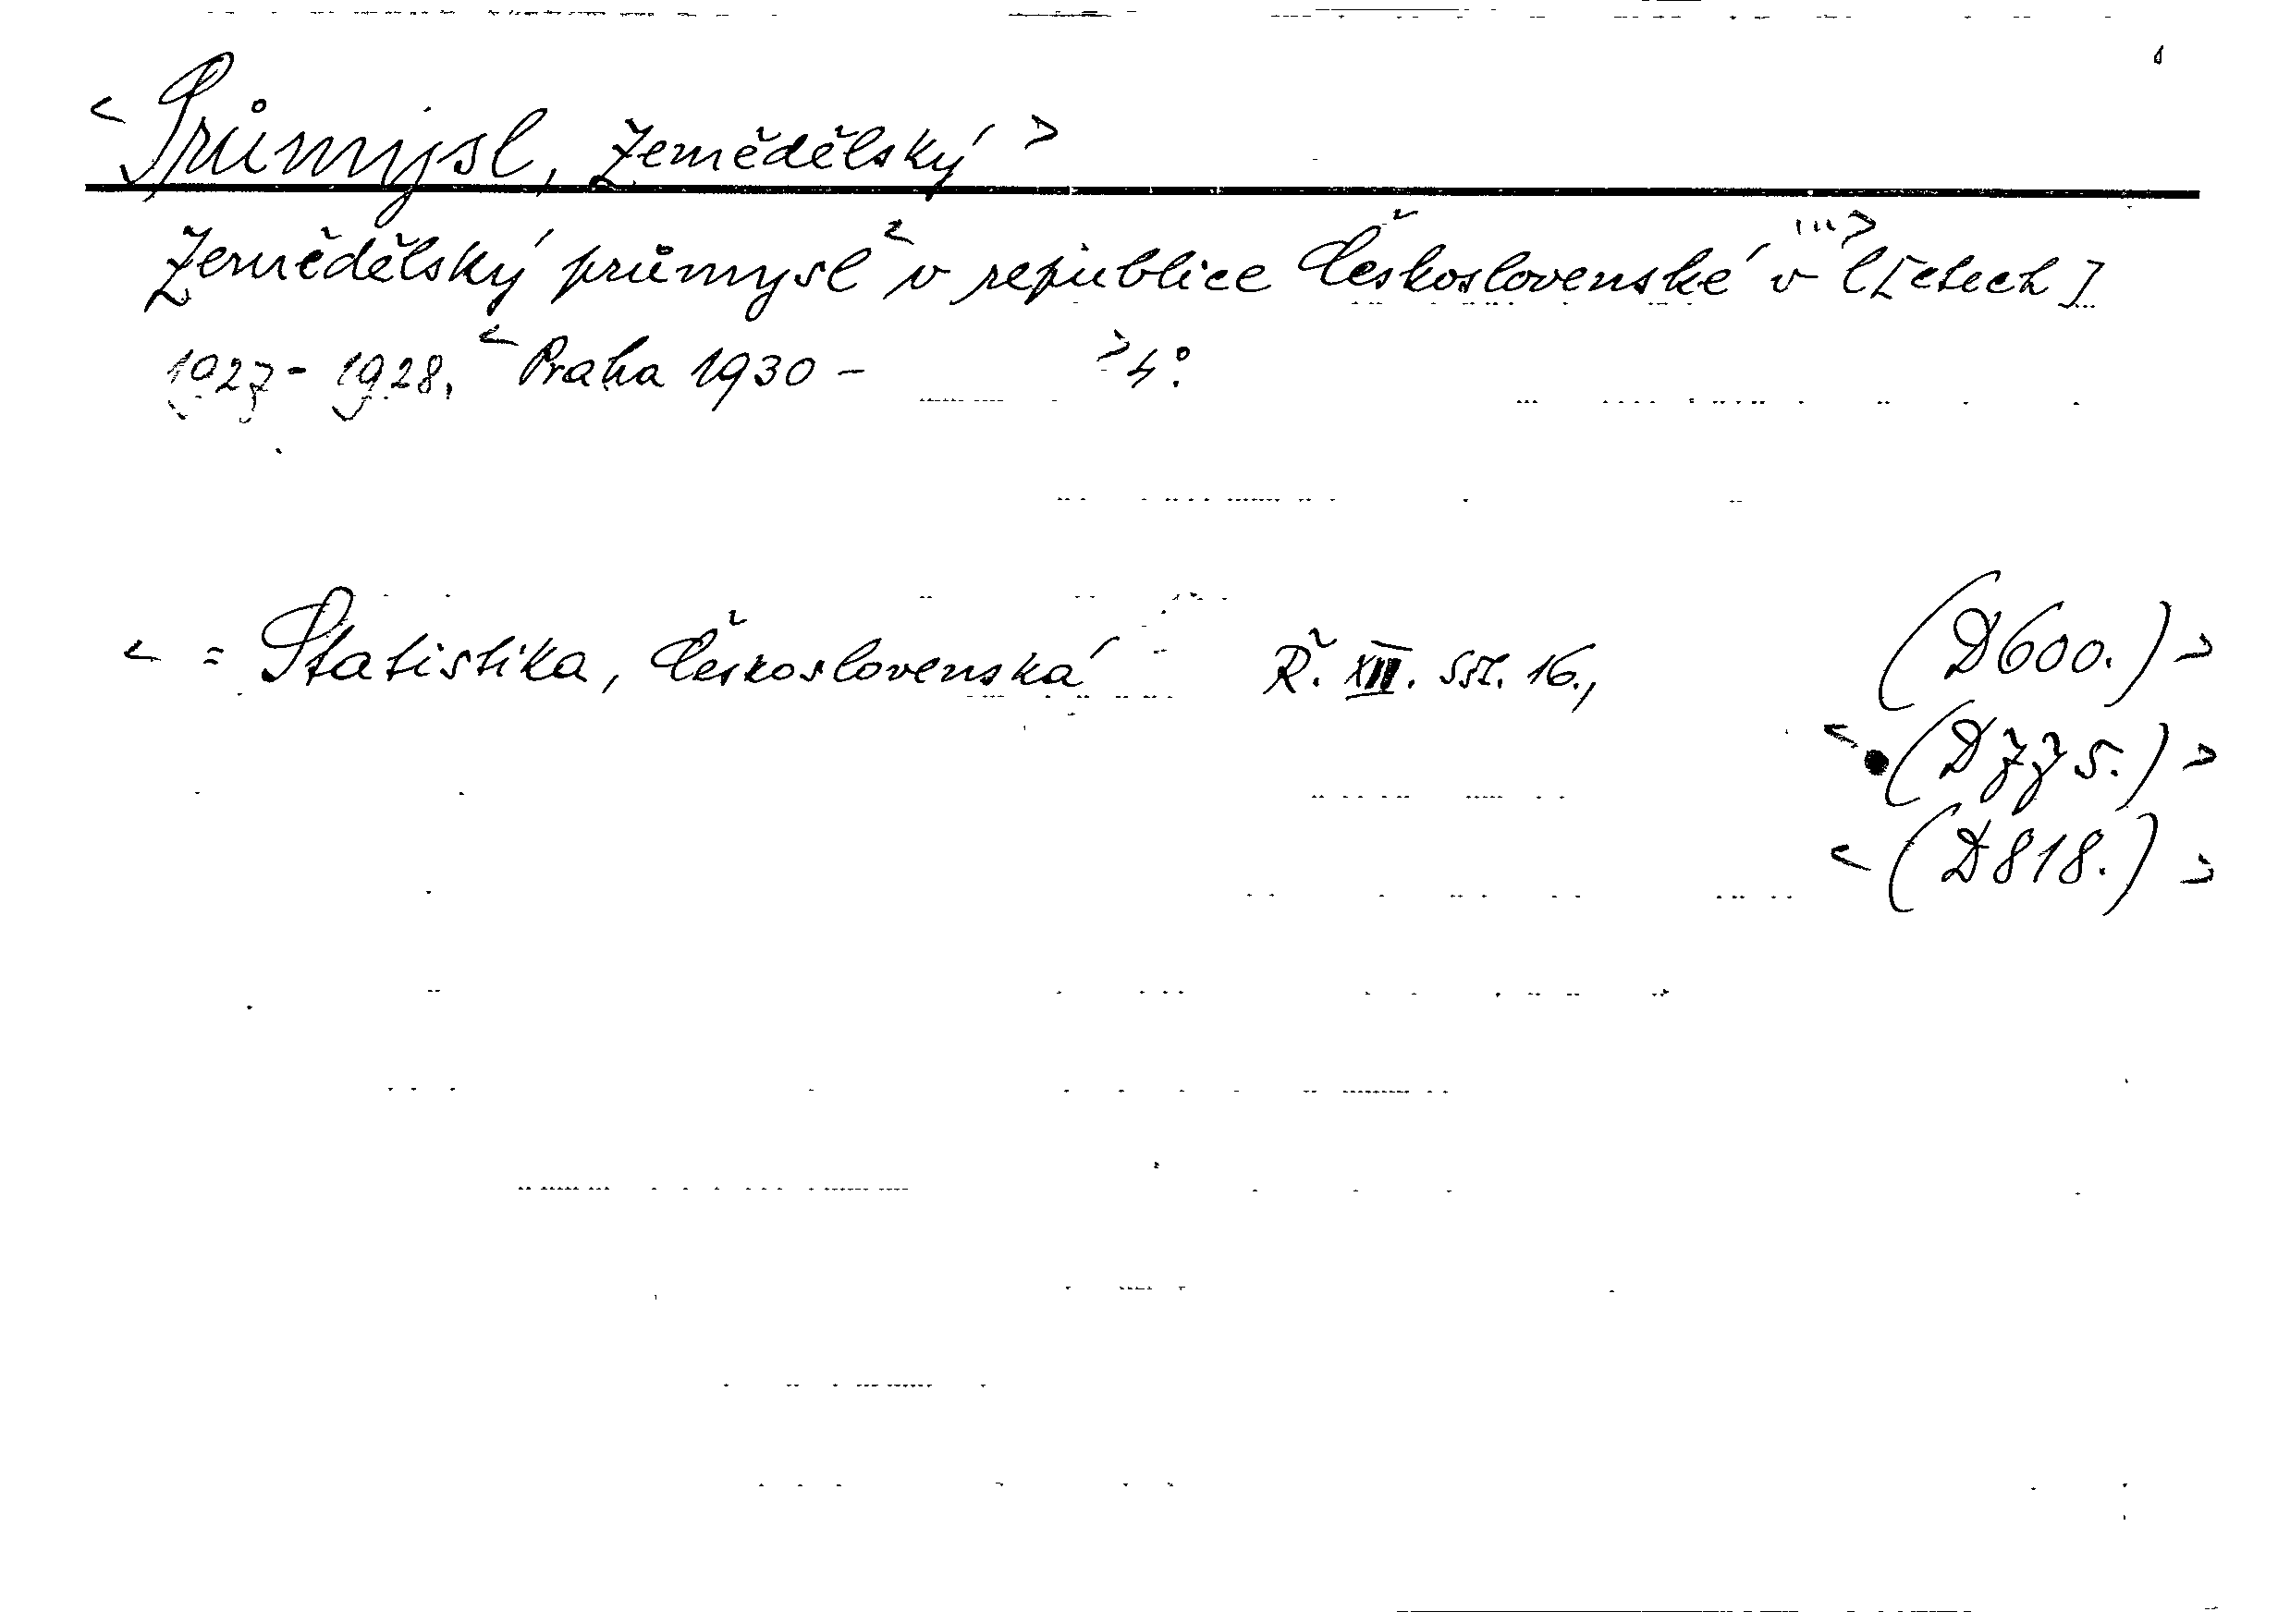 < Průmysl, Zemědělský >
Zemědělský průmysl < v republice Československé v ... > l[etech]
1927-1928. < Praha 1930 - > 4°.
< = Statistika, Československá Ř. XII. sv. 16., (D600.) >
< (D775.) >
< (D818.) >